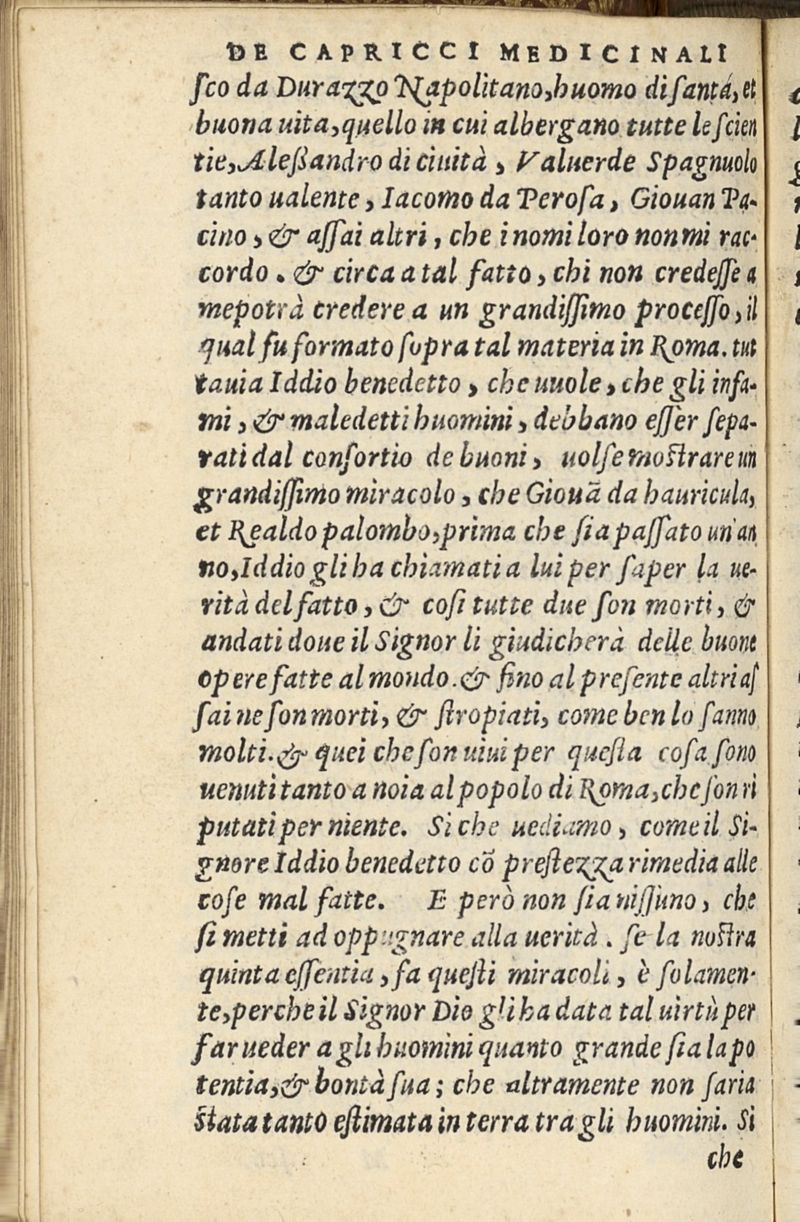 DE CAPRICCI MEDICINALI
ſco da Durazzo Napolitano, huomo di ſantá, et
buona uita, quello in cui albergano tutte le ſcien
tie, Aleßandro di ciuità, Valuerde Spagnuolo
tanto ualente, Iacomo da Peroſa, Giouan Pa-
cino, & aſſai altri, che i nomi loro non mi rac-
cordo. & circa a tal fatto, chi non credeſſe a
me potrà credere a un grandiſſimo proceſſo, il
qual fu formato ſopra tal materia in Roma. tut
tauia Iddio benedetto, che uuole, che gli infa-
mi, & maledetti huomini, debbano eſſer ſepa-
rati dal conſortio de buoni, uolſe moſtrare un
grandiſſimo miracolo, che Giouã da hauricula,
et Realdo palombo, prima che ſia paſſato un'an
no, Iddio gli ha chiamati a lui per ſaper la ue-
rità del fatto, & coſi tutte due ſon morti, &
andati doue il Signor li giudicherà delle buone
opere fatte al mondo. & fino al preſente altri aſ
ſai ne ſon morti, & ſtropiati, come ben lo ſanno
molti. & quei che ſon uiui per queſta coſa ſono
uenuti tanto a noia al popolo di Roma, che ſon ri
putati per niente. Si che uediamo, come il Si-
gnore Iddio benedetto cõ preſtezza rimedia alle
coſe mal fatte. E però non ſia niſſuno, che
ſi metti ad oppugnare alla uerità. ſe la noſtra
quinta eſſentia, fa queſti miracoli, è ſolamen-
te, perche il Signor Dio gli ha data tal uirtù per
far ueder a gli huomini quanto grande ſia la po
tentia, & bontà ſua; che altramente non ſaria
ſtata tanto eſtimata in terra tra gli huomini. Si
che